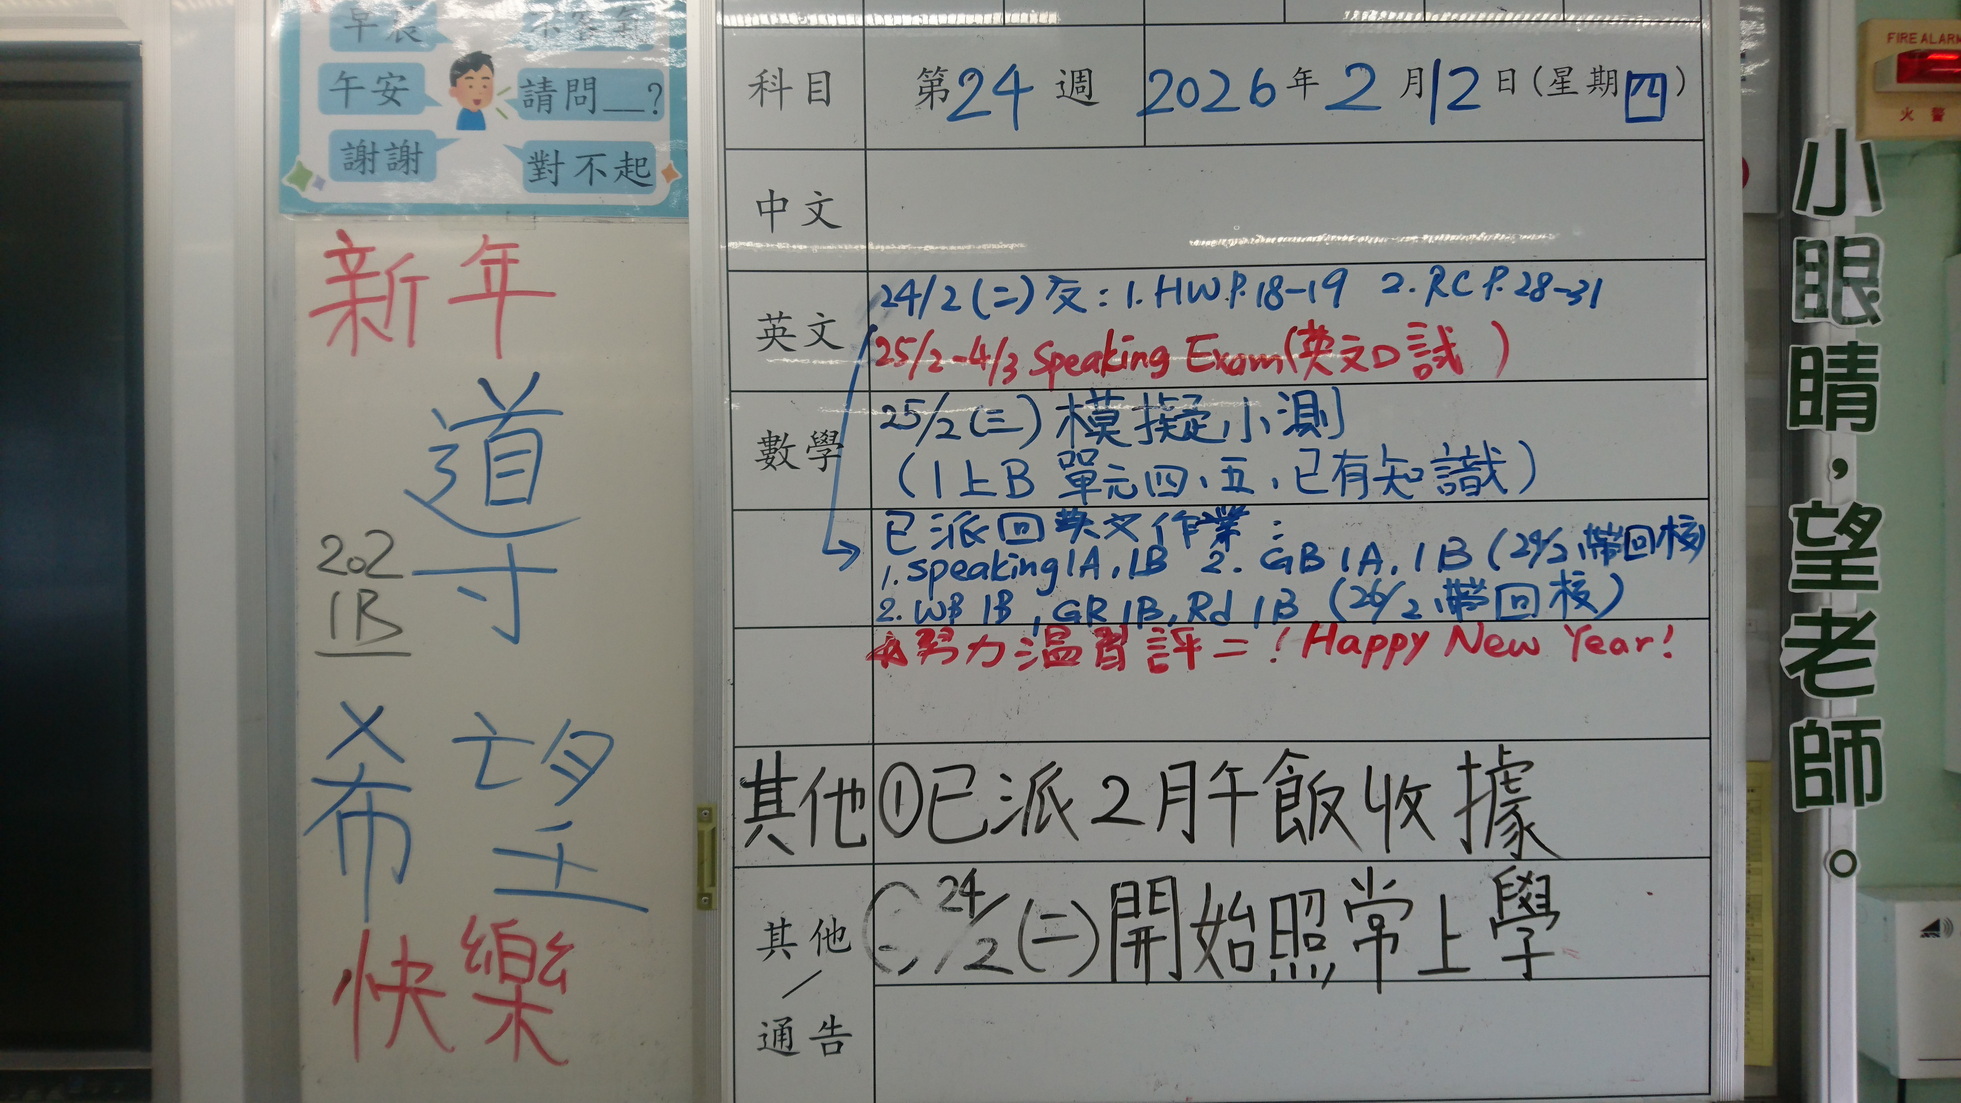 午安
請問__?
謝謝
對不起
新年
導
202
1B
希望
快樂
科目 第24週 2026年2月12日(星期四)
中文
英文
24/2(二)交:1.HW P.18-19 2.RC P.28-31
25/2-4/3 Speaking Exam(英文口試)
數學
25/2(三)模擬小測
(1上B 單元四、五、已有知識)
已派回英文作業:
1. speaking 1A, 1B 2. GB 1A, 1B (24/2 帶回校)
2. WB 1B, GR 1B, Rd 1B (26/2 帶回校)
努力溫習評二! Happy New Year!
其他 ①已派2月午飯收據
其他/通告
24/2(二)開始照常上學
小眼睛,望老師。
FIRE ALARM
火警